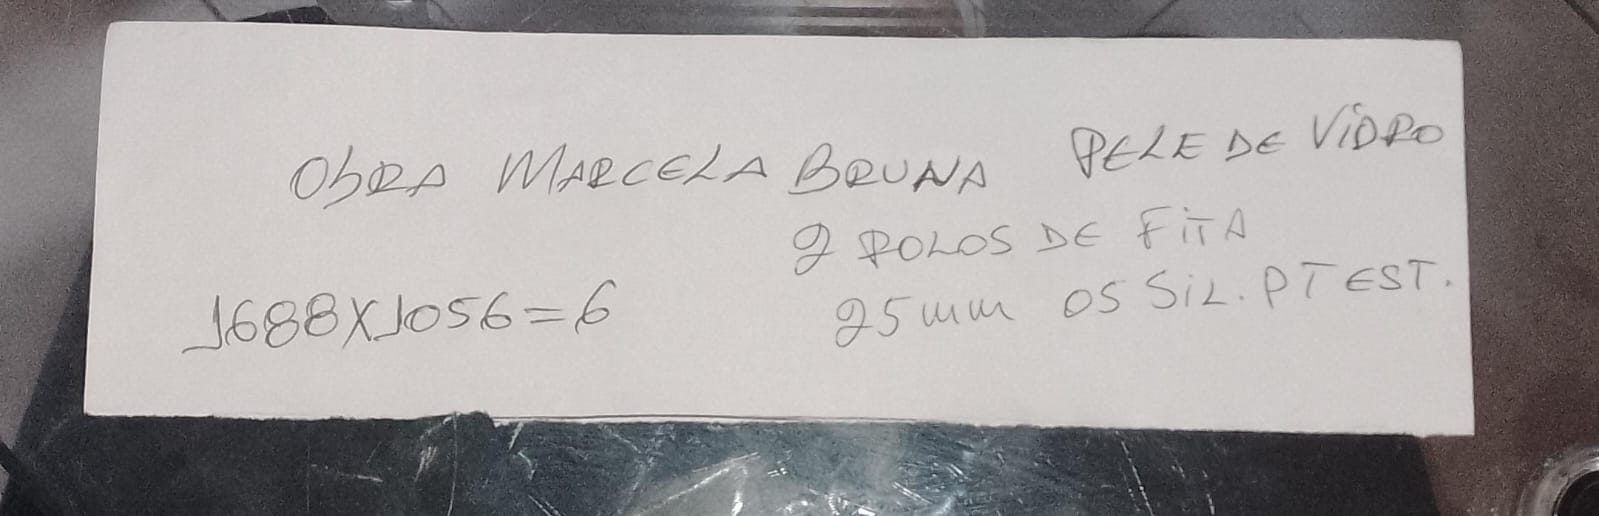 ObRA MARCELA BRUNA PELE DE VIDRO
2 ROLOS DE FITA
1688X1056=6 25mm 05 SiL. PT EST.